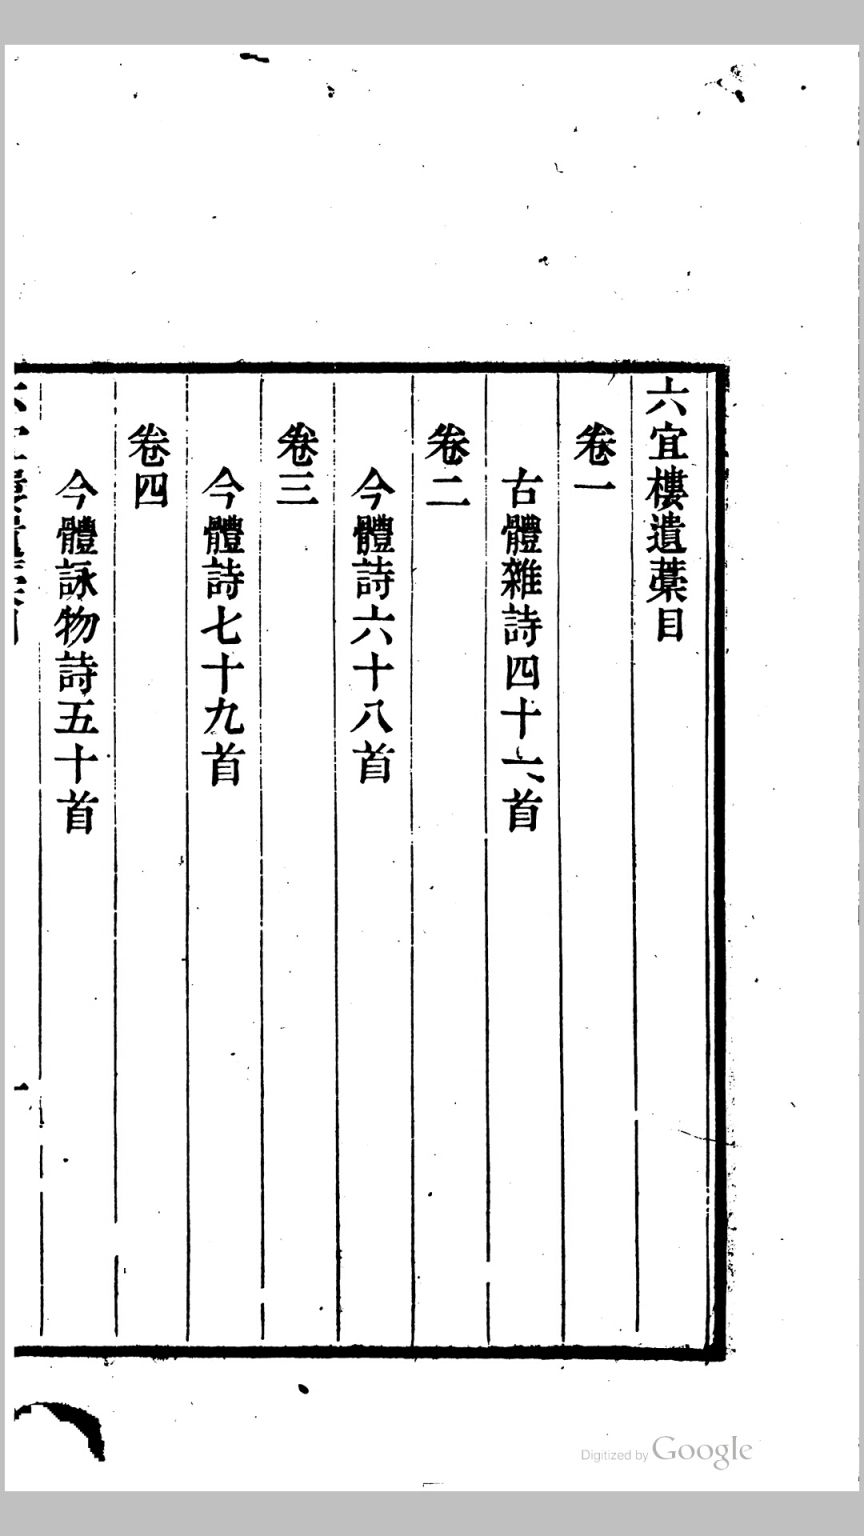 六宜樓遺藁目
卷一
古體雜詩四十一首
卷二
今體詩六十八首
卷三
今體詩七十九首
卷四
今體詠物詩五十首
Digitized by Google